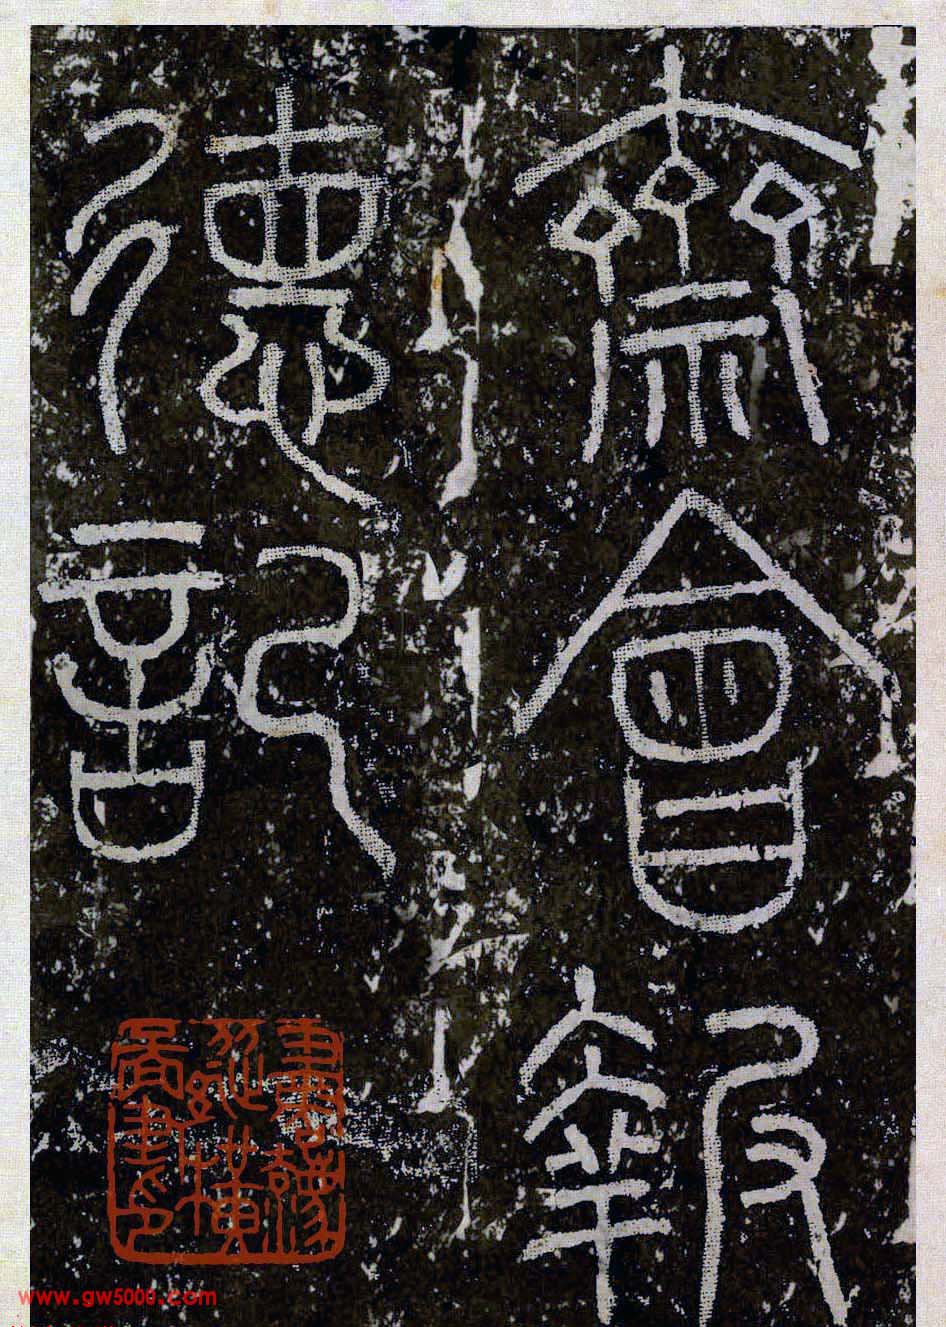 齋會報
德記
www.gw5000.com